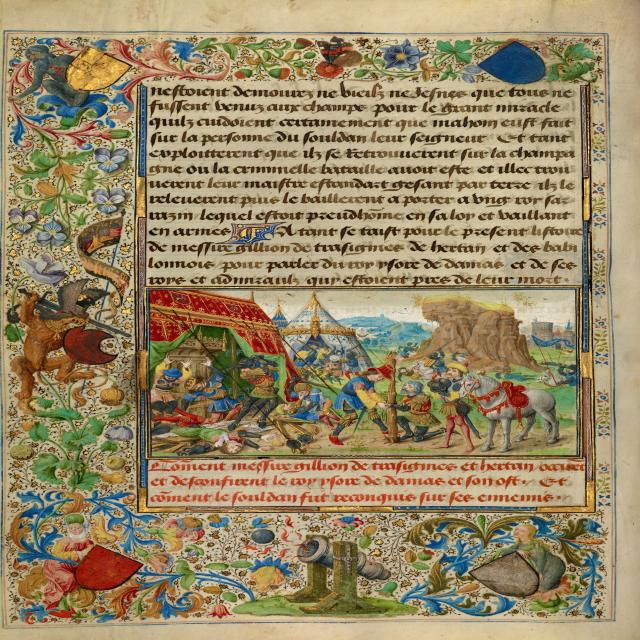 nestoient demourez ne vieilz ne Jesnes que tous ne
fussent venus aux champs pour le grant miracle
quilz cuidoient certainement que mahom eust fait
sur la personne du souldan leur seigneur Et tant
exploitterent que ilz se retrouuerent sur la champai
gne ou la criminelle bataille auoit este et illec trou
uerent leur maistre estandart gesant par terre ilz le
releuerent puis le baillerent a porter a vng roy sar
razin lequel estoit preudhomme en sa loy et vaillant
en armes A tant se taist pour le present listoire
de messire gillion de trasignies de hertan et des babi
lonnois pour parler du roy ysore de damas et de ses
roys et admiraulx qui estoient pres de leur mort
Coment messire gillion de trasignies et hertan
et desconfirent le roy ysore de damas et son ost Et
coment le souldan fut reconquis sur ses ennemis